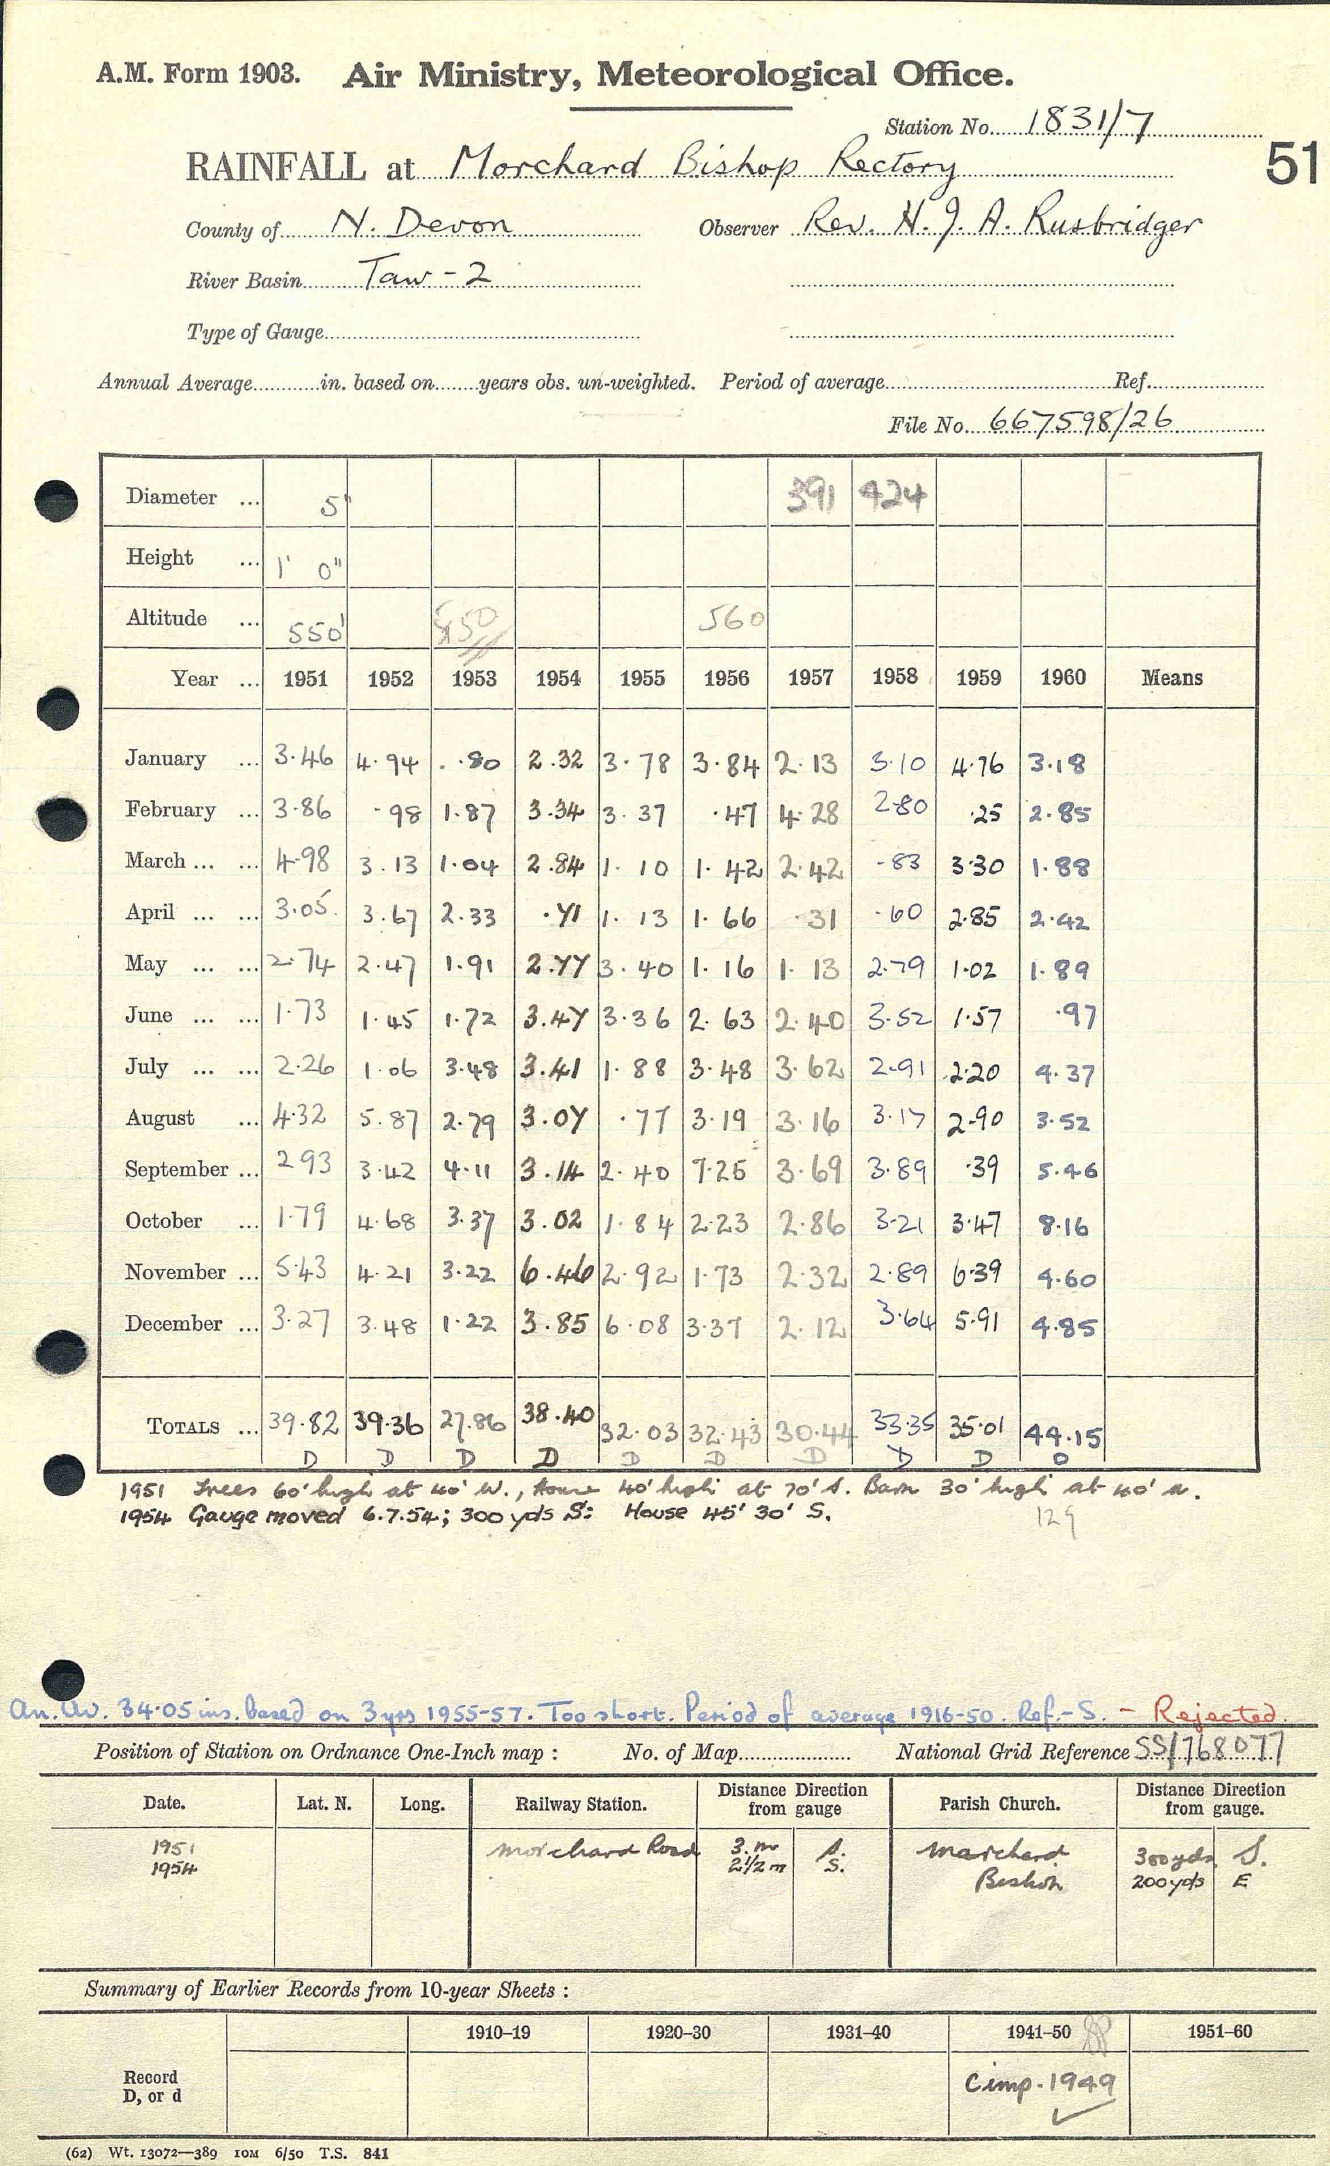 A.M. Form 1903. Air Ministry, Meteorological Office.
Station No. 1831/7
RAINFALL at Morchard Bishop Rectory
51
County of N. Devon Observer Rev. H. J. A. Rusbridger
River Basin Taw-2
Type of Gauge
Annual Average in. based on years obs. un-weighted. Period of average Ref.
File No. 667598/26
Diameter ... 5" 391 424
Height ... 1' 0"
Altitude ... 550' 550 560
Year ... 1951 1952 1953 1954 1955 1956 1957 1958 1959 1960 Means
January ... 3.46 4.94 .80 2.32 3.78 3.84 2.13 3.10 4.76 3.18
February ... 3.86 .98 1.87 3.34 3.37 .47 4.28 2.80 .25 2.85
March ... ... 4.98 3.13 1.04 2.84 1.10 1.42 2.42 .83 3.30 1.88
April ... ... 3.05 3.67 2.33 .71 1.13 1.66 .31 .60 2.85 2.42
May ... ... 2.74 2.47 1.91 2.77 3.40 1.16 1.13 2.79 1.02 1.89
June ... ... 1.73 1.45 1.72 3.47 3.36 2.63 2.40 3.52 1.57 .97
July ... ... 2.26 1.06 3.48 3.41 1.88 3.48 3.62 2.91 2.20 4.37
August ... 4.32 5.87 2.79 3.07 .77 3.19 3.16 3.17 2.90 3.52
September ... 2.93 3.42 4.11 3.14 2.40 7.25 3.69 3.89 .39 5.46
October ... 1.79 4.68 3.37 3.02 1.84 2.23 2.86 3.21 3.47 8.16
November ... 5.43 4.21 3.22 6.46 2.92 1.73 2.32 2.89 6.39 4.60
December ... 3.27 3.48 1.22 3.85 6.08 3.37 2.12 3.64 5.91 4.85
TOTALS ... 39.82 39.36 27.86 38.40 32.03 32.43 30.44 33.35 35.01 44.15
D D D D D D D D D D
1951 Trees 60' high at 40' W., House 40' high at 70' S. Barn 30' high at 40' N.
1954 Gauge moved 6.7.54; 300 yds S: House 45' 30' S.
129
An. Av. 34.05 ins. based on 3 yrs 1955-57. Too short. Period of average 1916-50. Ref.-S. - Rejected.
Position of Station on Ordnance One-Inch map : No. of Map National Grid Reference SS/768077
Date. Lat. N. Long. Railway Station. Distance Direction from gauge Parish Church. Distance Direction from gauge.
1951 Morchard Road 3. m S. Morchard 300 yds S.
1954 2½ m S. Bishop 200 yds E
Summary of Earlier Records from 10-year Sheets :
1910–19 1920–30 1931–40 1941–50 1951–60
Record
D, or d
Cimp. 1949
(62) Wt. 13072—389 10M 6/50 T.S. 841